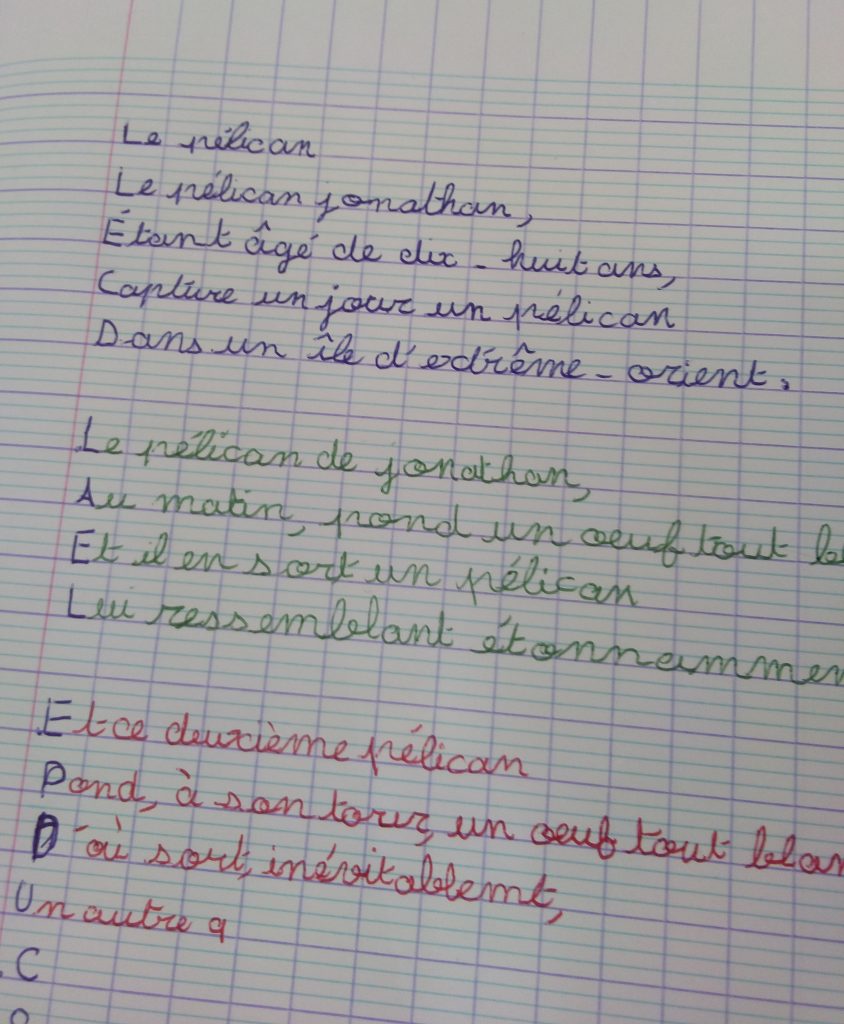 Le pélican
Le pélican jonathan,
Étant âgé de dix-huit ans,
Capture un jour un pélican
Dans un île d'extrême-orient.
Le pélican de jonathan,
Au matin, pond un oeuf tout bl
Et il en sort un pélican
Lui ressemblant étonnammen
Et ce deuxième pélican
Pond, à son tour, un oeuf tout blan
D'où sort, inévitablemt,
Un autre q
C